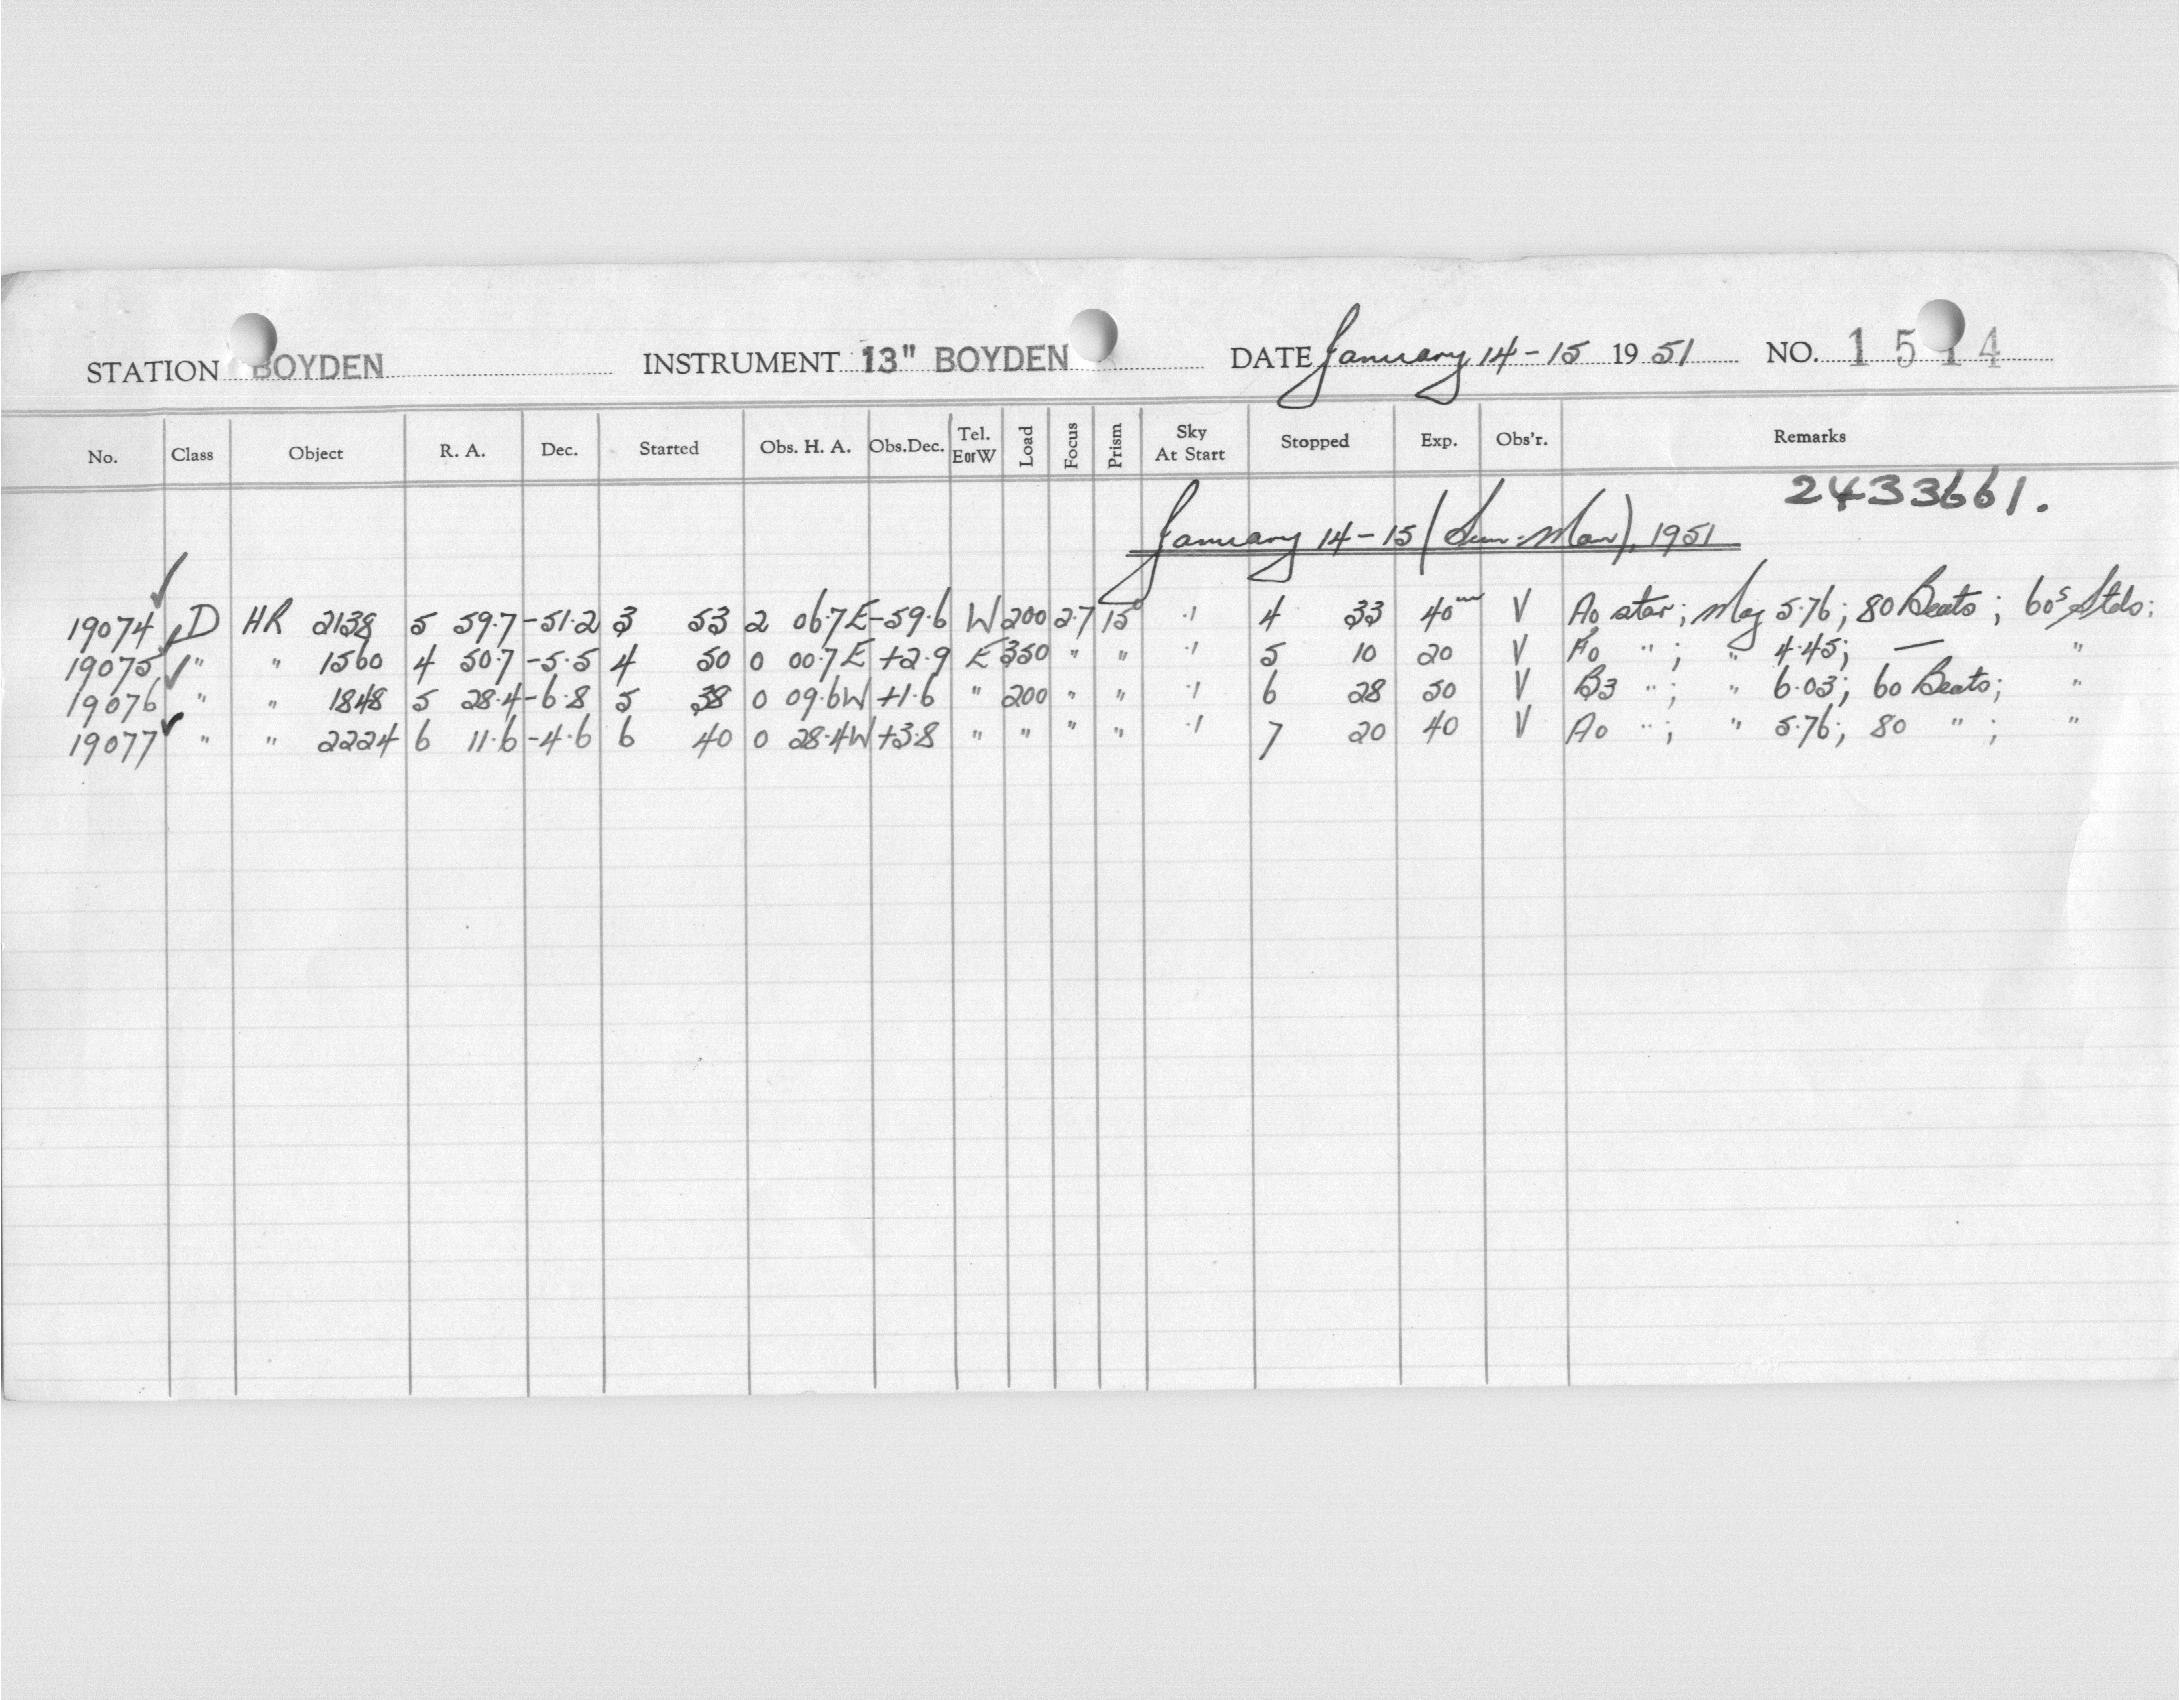 STATION BOYDEN INSTRUMENT 13" BOYDEN DATE January 14-15 1951 NO. 1514
No. Class Object R. A. Dec. Started Obs. H. A. Obs.Dec. Tel. EorW Load Focus Prism Sky At Start Stopped Exp. Obs'r. Remarks
2433661.
January 14-15 (Sun-Mon), 1951
19074 ✓ D HR 2138 5 59.7 -51.2 3 53 2 06.7E -59.6 W 200 2.7 15° .1 4 33 40ᵐ V A0 star; Mag 5.76; 80 Beats; 60ˢ Stds;
19075 ✓ " " 1560 4 50.7 -5.5 4 50 0 00.7E +2.9 E 350 " " .1 5 10 20 V A0 "; " 4.45; — "
19076 ✓ " " 1848 5 28.4 -6.8 5 38 0 09.6W +1.6 " 200 " " .1 6 28 50 V B3 "; " 6.03; 60 Beats; "
19077 ✓ " " 2224 6 11.6 -4.6 6 40 0 28.4W +3.8 " " " " .1 7 20 40 V A0 "; " 5.76; 80 "; "